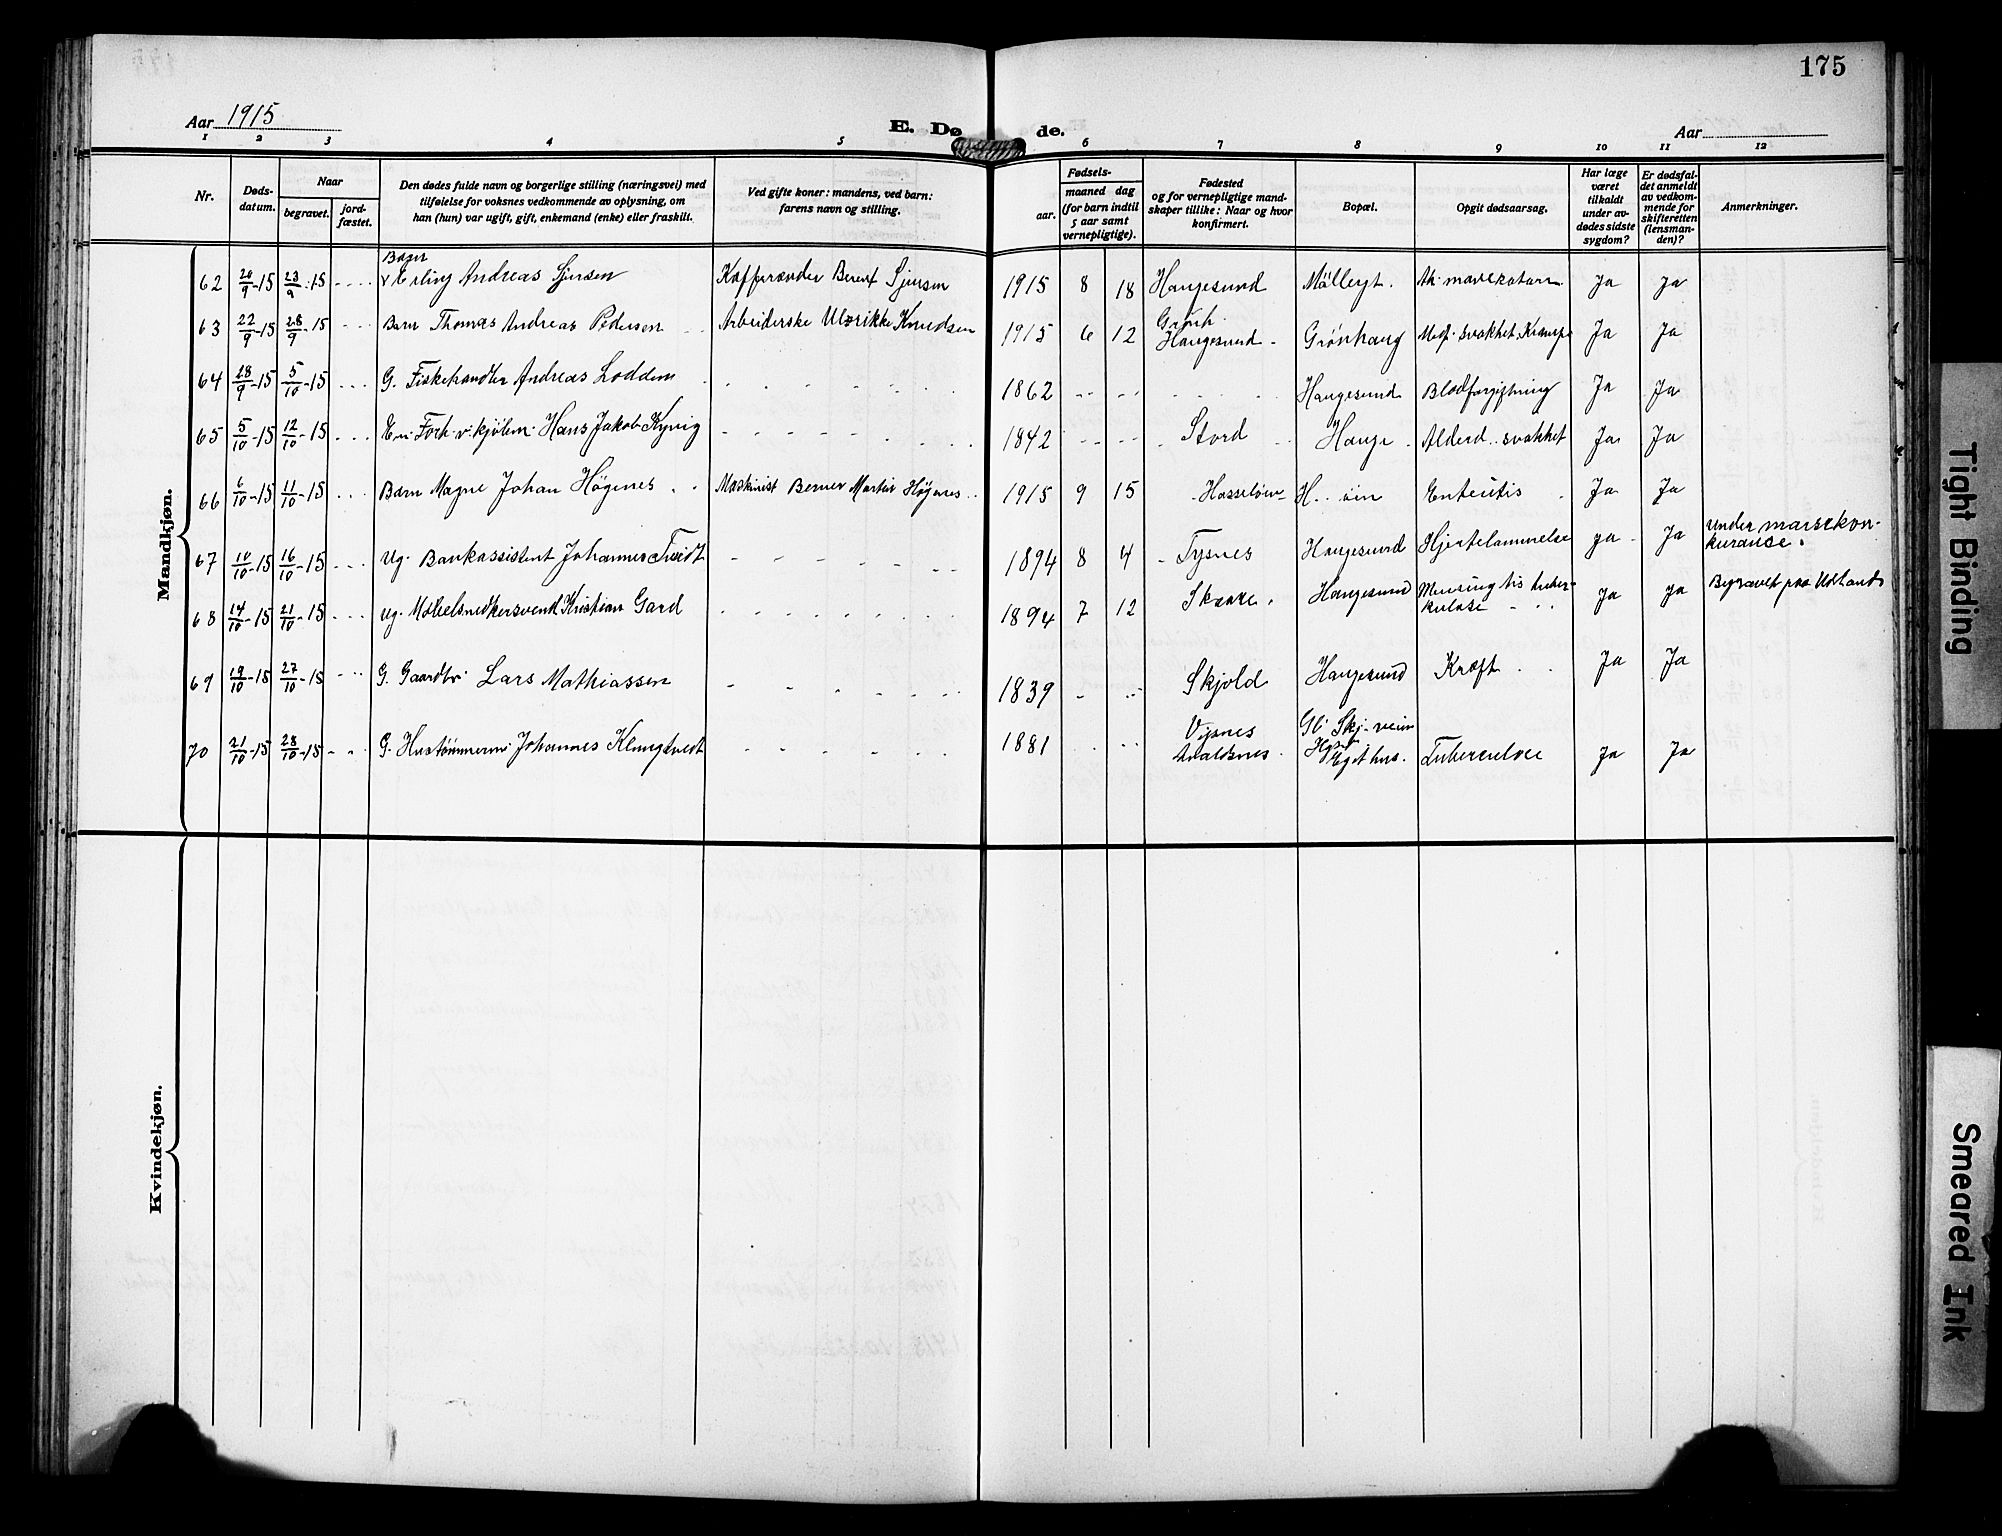 175
Aar 1915
E. Dø de.
Aar
1 2 3 4 5 6 7 8 9 10 11 12
Nr.
Døds-
datum.
Naar
begravet.
jord-
fæstet.
Den dødes fulde navn og borgerlige stilling (næringsvei) med
tilføielse for voksnes vedkommende av oplysning, om
han (hun) var ugift, gift, enkemand (enke) eller fraskilt.
Ved gifte koner: mandens, ved barn:
farens navn og stilling.
Fødsels-
aar.
maaned dag
(for barn indtil
5 aar samt
vernepligtige).
Fødested
og for vernepligtige mand-
skaper tillike: Naar og hvor
konfirmert.
Bopæl.
Opgit dødsaarsag.
Har læge
været
tilkaldt
under av-
dødes sidste
sygdom?
Er dødsfal-
det anmeldt
av vedkom-
mende for
skifteretten
(lensman-
den)?
Anmerkninger.
Mandkjøn.
62 20/9-15 23/9-15 Barn Erling Andreas Sjursen Berent Sjursen 1915 8 18 Haugesund Møllergt. Ak. mavekatarr Ja Ja
63 22/9-15 28/9-15 Barn Thomas Andreas Pedersen Arbeiderske Ulrikke Knudsen 1915 6 12 Grönh. Haugesund Grönhaug Medf. svakhet, Krampe Ja Ja
64 28/9-15 5/10-15 G. Fiskehandler Andreas Loddem 1862 Haugesund Blodforgiftning Ja Ja
65 5/10-15 12/10-15 Hans Jakob Kyvig 1842 Stord Hauge Alderd. svakhet Ja Ja
66 6/10-15 11/10-15 Barn Magne Johan Högenes Maskinist Berner Martin Högenes 1915 9 15 Hasseløen H. øin Enteritis Ja Ja
67 10/10-15 16/10-15 Ug. Bankassistent Johannes Tveidt 1894 8 4 Tysnes Haugesund Hjertelammelse ja Ja Under marsckon-
kuranse.
68 14/10-15 21/10-15 Ug. Møbelsnedkersvend Kristian Gard 1894 7 12 Skaare Haugesund Meningitis tuber-
kuløse Ja Ja Begravet paa Udland
69 19/10-15 27/10-15 G. Gaardbr. Lars Mathiassen 1839 Skjold Haugesund Kræft Ja Ja
70 21/10-15 28/10-15 G. Hustömmerm. Johannes Klungtvedt 1881 Vigsnes
Avaldsnes Gl. Skj. veien
Eget hus. Tuberculose Ja Ja
Kvindekjøn.
Tight Binding
Smeared Ink